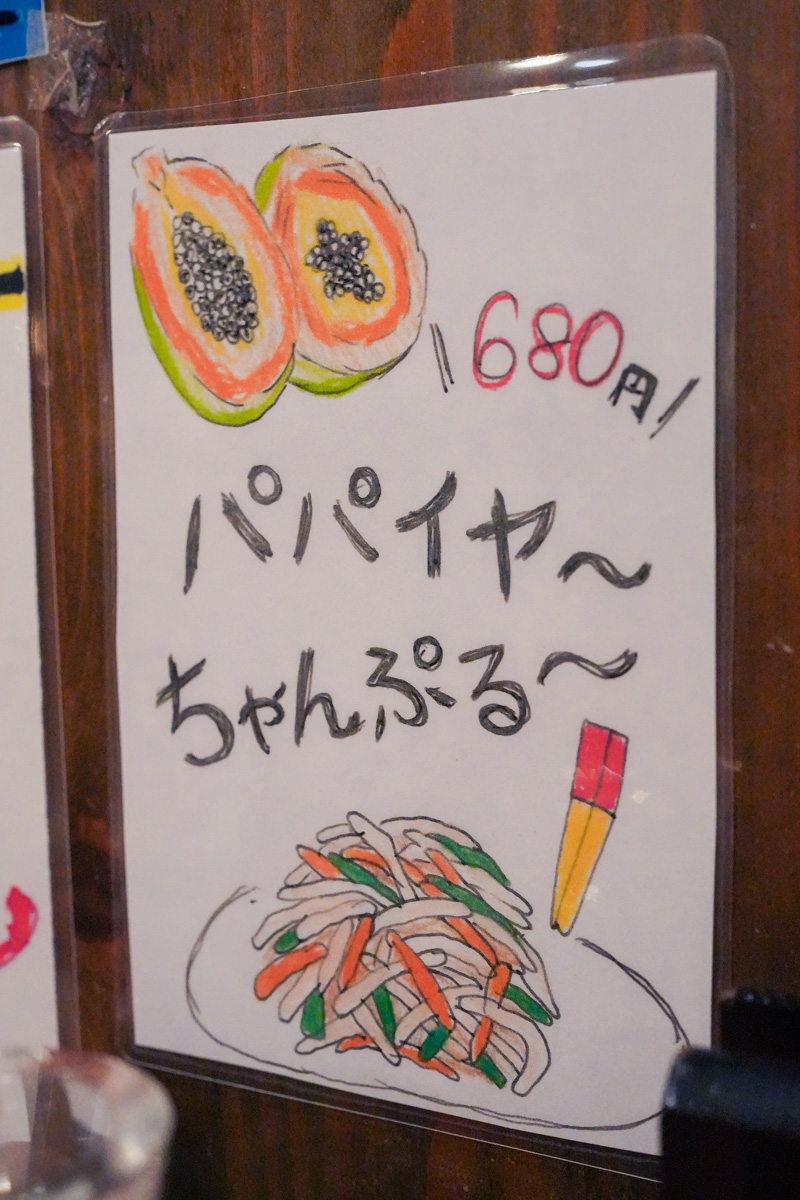 \680円/
パパイヤ〜
ちゃんぷる〜